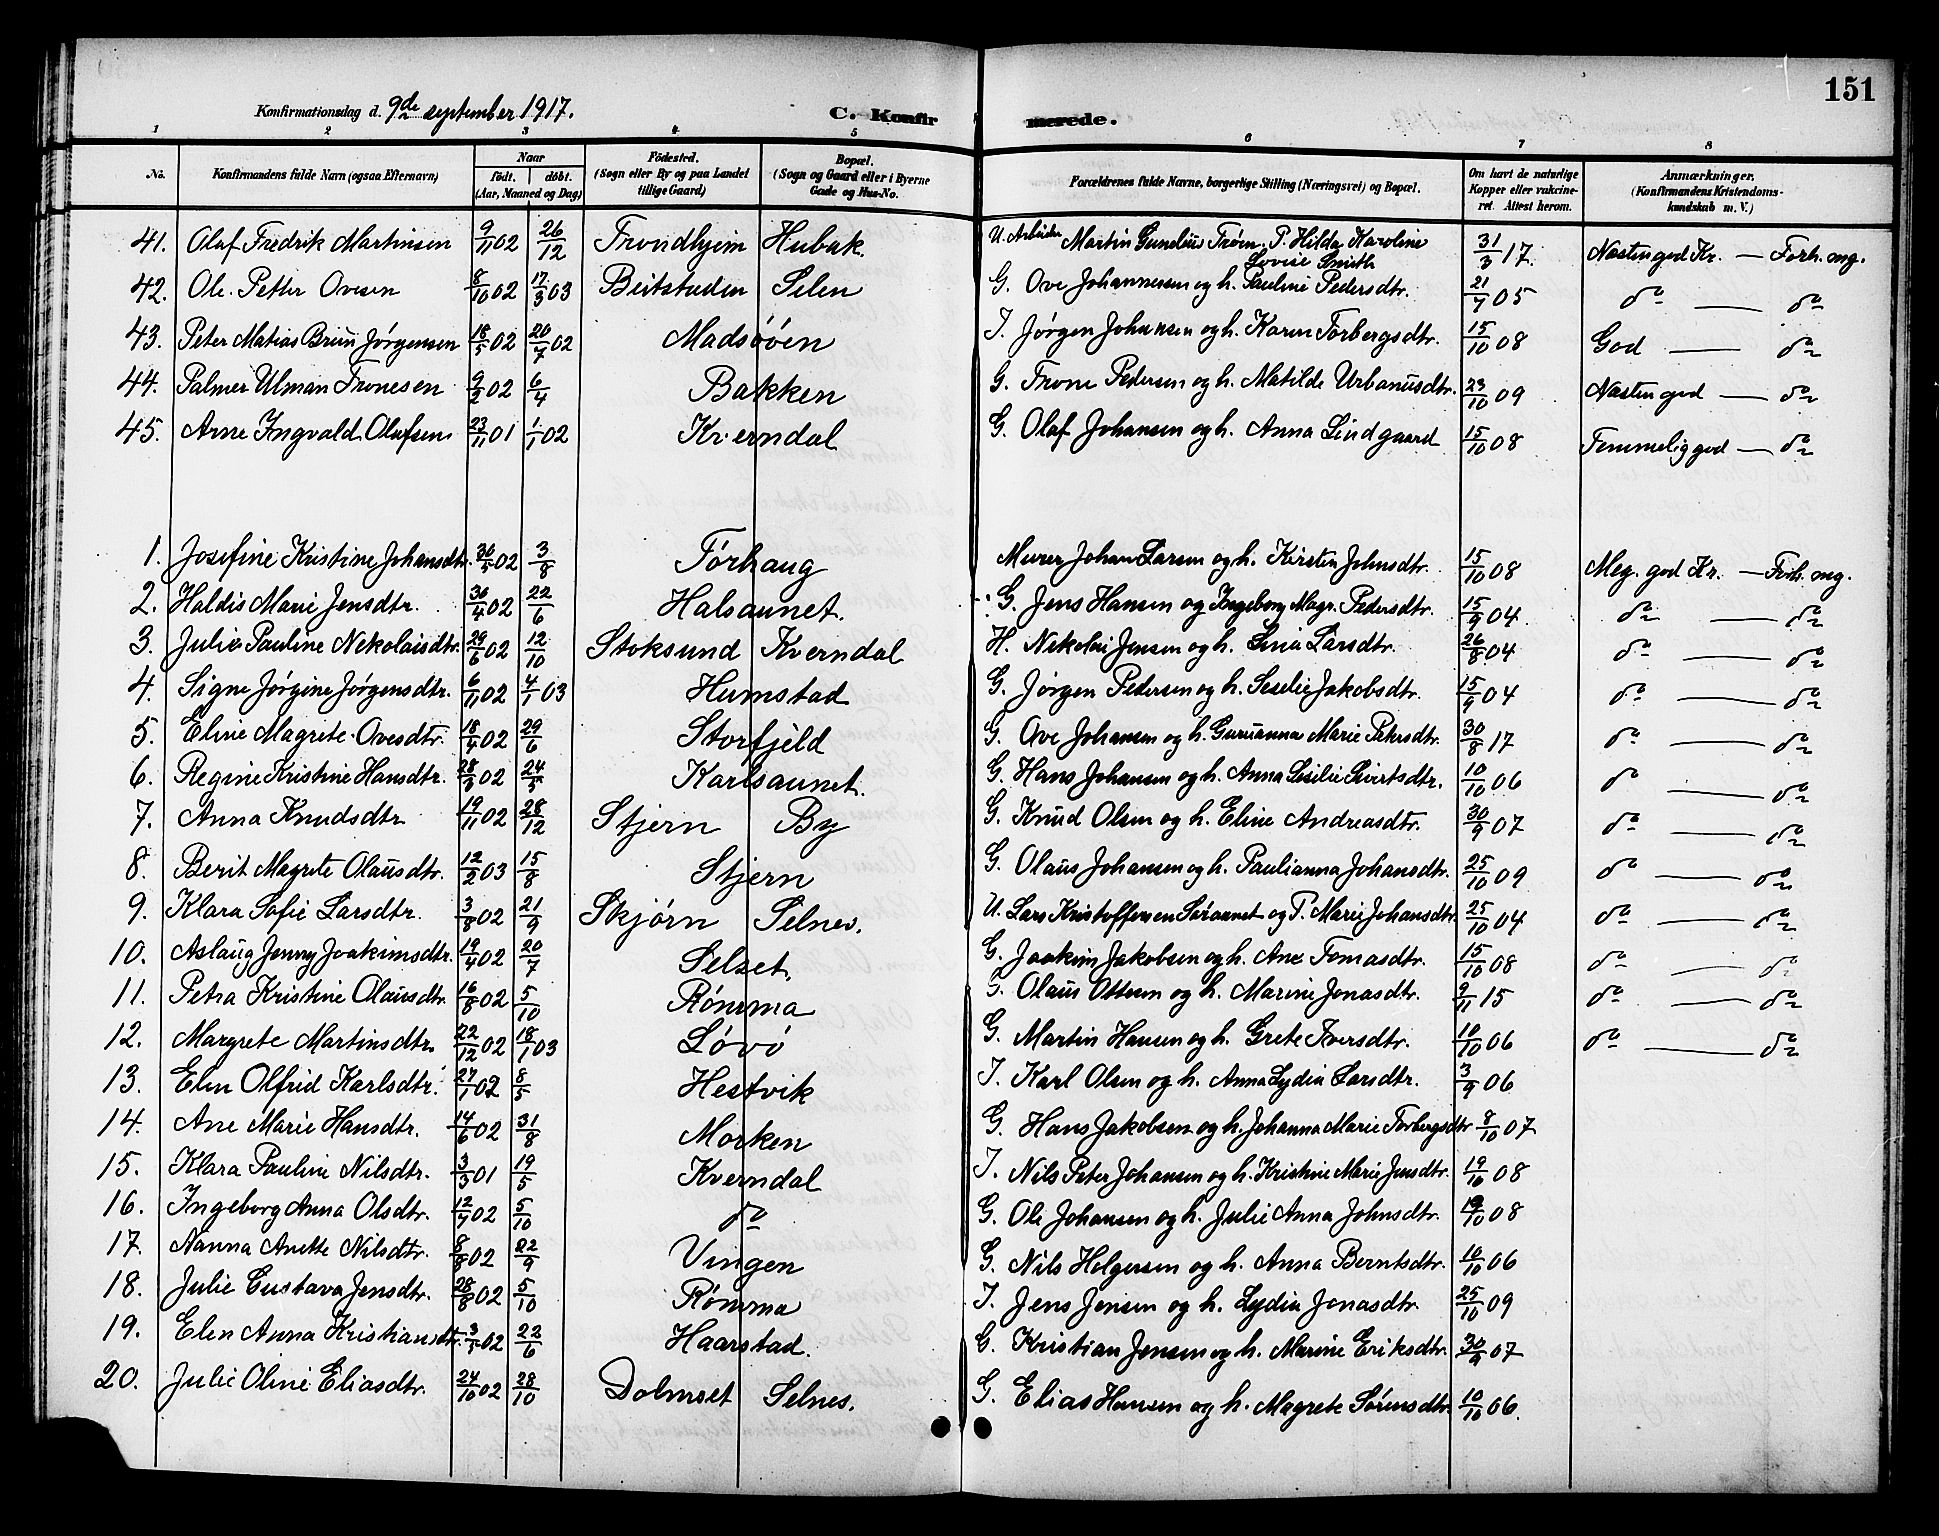 151
Konfirmationsdag d. 9de september 1917.
C. Konfirmerede.
1 2 3 4 5 6 7 8
No. Konfirmandens fulde Navn (ogsaa Efternavn) Naar født. døbt. (Aar, Maaned og Dag) Födested. (Sogn eller By og paa Landet tillige Gaard) Bopæl. (Sogn og Gaard eller i Byerne Gade og Hus-No. Forældrenes fulde Navne, borgerlige Stilling (Næringsvei) og Bopæl. Om havt de naturlige Kopper eller vakcineret. Attest herom. Anmærkninger. (Konfirmandens Kristendomskundskab m. V.)
41. Olaf Fredrik Martinsen 9/11 02 26/12 Trondhjem Hubak. U. Arbeider Martin Gunelius Trøen. P. Hilda Karoline Lovise Smith 31/3 17. Næsten god Kr. — Forh. mg.
42. Ole Petter Ovesen 8/10 02 17/3 03 Beitstaden Selen G. Ove Johannesen og h. Pauline Pedersdtr. 21/7 05 do — do
43. Peter Matias Brun Jørgensen 18/5 02 20/7 02 Madsøøen I. Jørgen Johansen og h. Karen Torbergsdtr. 15/10 08 God — do
44. Palmer Ulman Tronesen 9/2 02 6/4 Bakken G. Trone Pedersen og h. Matilde Urbanusdtr. 23/10 09 Næsten god — do
45. Arne Ingvald Olafsen 23/11 01 1/1 02 Kverndal G. Olaf Johansen og h. Anna Lindgaard 15/10 08 Temmelig god — do
1. Josefine Kristine Johansdtr. 30/5 02 3/8 Tørhaug Murer Johan Larsen og h. Kirsten Johnsdtr. 15/10 08 Meg. god Kr. — Forh. mg.
2. Haldis Marie Jensdtr. 30/4 02 22/6 Halsaunet. G. Jens Hansen og Ingeborg Magr. Pedersdtr. 15/9 04. do — do
3. Julie Pauline Nekolaisdtr. 29/6 02 12/10 Stoksund Kverndal H. Nikolai Jensen og h. Lina Larsdtr. 26/8 04 do — do
4. Signe Jørgine Jørgensdtr. 6/11 02 4/1 03 Humstad G. Jørgen Pedersen og h. Seselie Jakobsdtr. 15/9 04 do — do
5. Eline Magrete Ovesdtr. 18/4 02 29/6 Storfjeld G. Ove Johansen og h. Guruanna Marie Petersdtr. 30/8 17 do — do
6. Regine Kristine Hansdtr. 28/3 02 24/5 Karlsaunet. G. Hans Johansen og h. Anna Sesilie Sivertsdtr. 10/10 06 do — do
7. Anna Knudsdtr 19/11 02 28/12 Stjern By G. Knud Olsen og h. Eline Andreasdtr. 30/9 07 do — do
8. Berit Magrete Olausdtr. 12/2 03 15/8 Stjern G. Olaus Johansen og h. Paulianna Johansdtr. 25/10 09 do — do
9. Klara Sofie Larsdtr. 3/8 02 21/9 Skjørn Selnes. U. Lars Kristoffersen Søraunet og P. Marie Johansdtr. 25/10 04 do — do
10. Aslaug Jenny Joakimsdtr. 19/4 02 20/7 Selset. G. Joakim Jakobsen og h. Ane Tomasdtr. 15/10 08 do — do
11. Petra Kristine Olausdtr. 16/8 02 5/10 Rømma G. Olaus Ottesen og h. Marine Jonasdtr. 9/11 15 do — do
12. Margrete Martinsdtr. 22/12 02 18/1 03 Løvø G. Martin Hansen og h. Grete Iversdtr. 10/10 06 do — do
13. Elen Olfrid Karlsdtr. 27/1 02 8/5 Hestvik I. Karl Olsen og h. Anna Lydia Larsdtr. 3/9 06
14. Ane Marie Hansdtr. 14/6 02 31/8 Morken G. Hans Jakobsen og h. Johanna Marie Torbergsdtr 8/10 07
15. Klara Pauline Nilsdtr. 3/3 01 19/5 Kverndal I. Nils Peter Johansen og h. Kristine Marie Jensdtr. 19/10 08
16. Ingeborg Anna Olsdtr. 12/7 02 5/10 do G. Ole Johansen og h. Julie Anna Johnsdtr. 19/10 08
17. Nanna Anette Nilsdtr. 8/8 02 22/9 Vingen G. Nils Holgersen og h. Anna Berntsdtr. 10/10 06
18. Julie Gustava Jensdtr. 28/8 02 5/10 Rømma I. Jens Jensen og h. Lydia Jonasdtr. 25/10 09
19. Elen Anna Kristiansdtr. 3/5 02 22/6 Haarstad. G. Kristian Jensen og h. Marine Eriksdtr. 30/9 07
20. Julie Oline Eliasdtr. 24/10 02 28/10 Dolmset Selnes. G. Elias Hansen og h. Magrete Sørensdtr. 10/10 06.